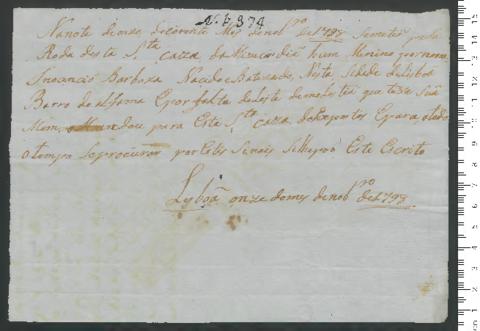 N. 6 374
Na note de onze do corente Mes de nobr.º de 1798 Se meteo pela
Roda desta S.ta caza da Mizericordia hum Menino por nome
Inocencio Barboza Nacido e Batizado, Nesta Sidade de Lisboa
Barro de Alfama E por falta de Leite de molestia que teve Sua
Mem, o Mandou para Esta S.ta caza de Expostos E para a todo
o tempo Se procurar por Estes Sinais Se lhe poz Este Escrito
Lixboa onze do mes de nobr.º de 1798